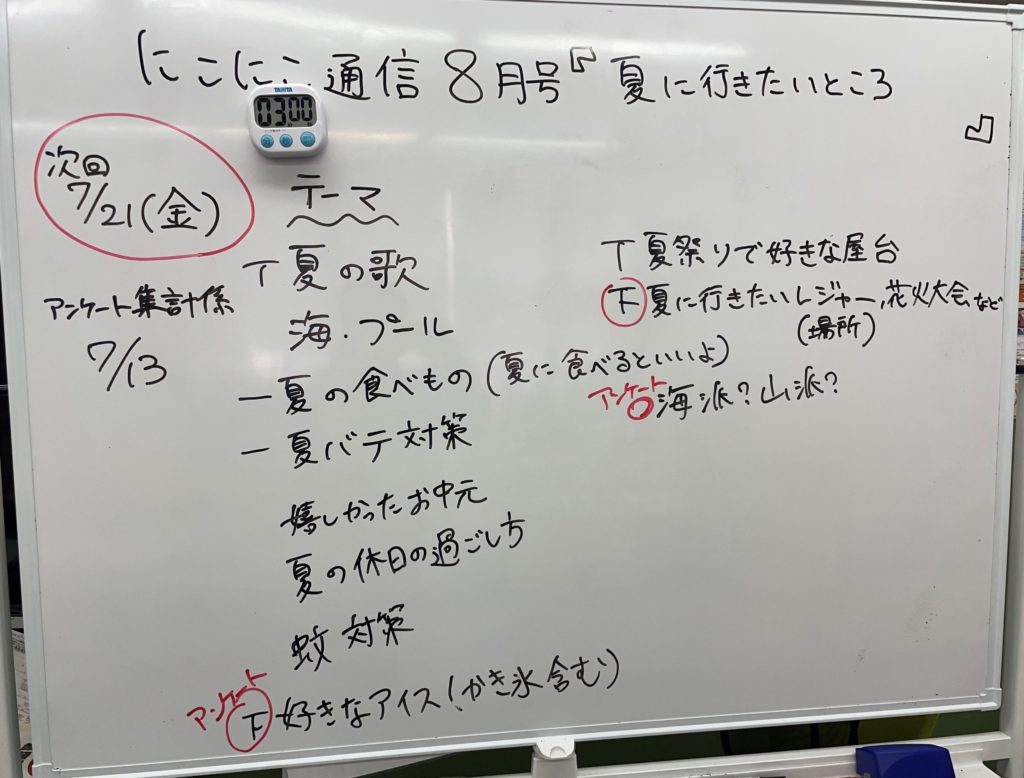 にこにこ通信 8月号『夏に行きたいところ』
TANITA
03 00
次回
7/21(金)
アンケート集計係
7/13
テーマ
T 夏の歌
海・プール
一 夏の食べもの(夏に食べるといいよ)
一 夏バテ対策
嬉しかったお中元
夏の休日の過ごし方
蚊対策
アンケート
下 好きなアイス!(かき氷含む)
T 夏祭りで好きな屋台
下 夏に行きたいレジャー、花火大会など
(場所)
アンケート
海派?山派?